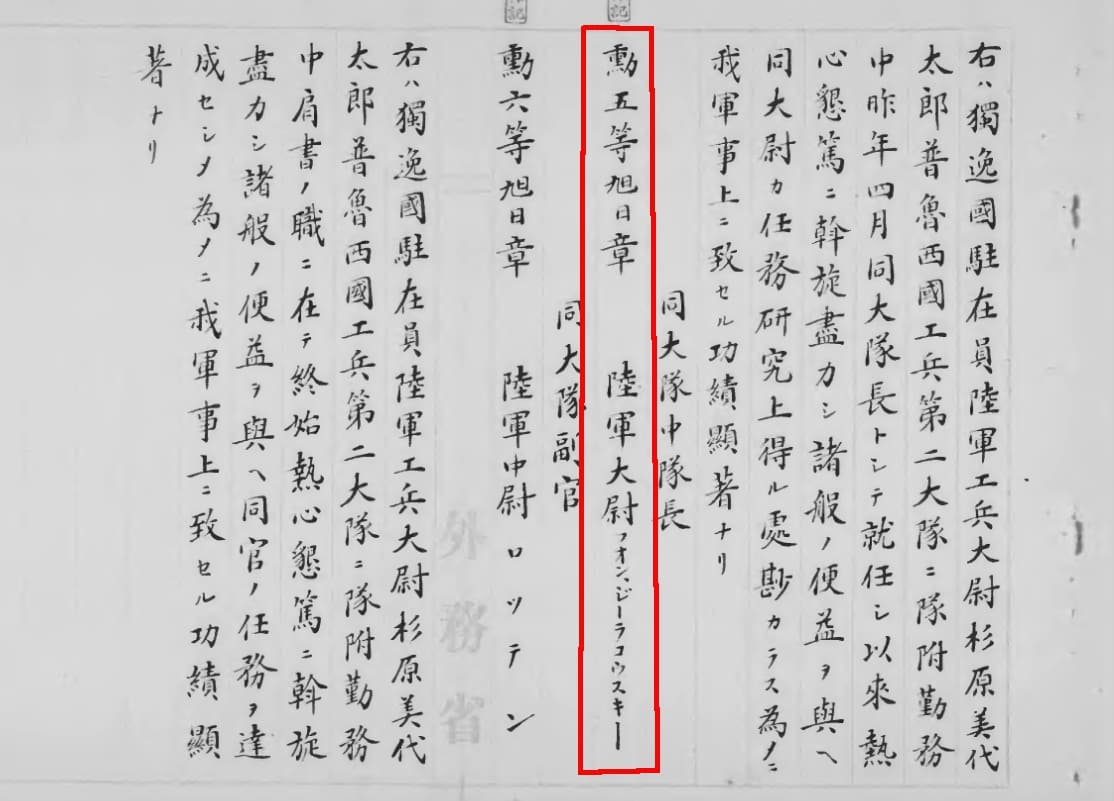 右ハ獨逸國駐在員陸軍工兵大尉杉原美代
太郎普魯西國工兵第二大隊ニ隊附勤務
中昨年四月同大隊長トシテ就任シ以來熱
心懇篤ニ斡旋盡力シ諸般ノ便益ヲ與ヘ
同大尉カ任務研究上得ル處尠カラス為メニ
我軍事上ニ致セル功績顯著ナリ
同大隊中隊長
勳五等旭日章 陸軍大尉フオン、ジーラコウスキー
同大隊副官
勳六等旭日章 陸軍中尉ロッテン
右ハ獨逸國駐在員陸軍工兵大尉杉原美代
太郎普魯西國工兵第二大隊ニ隊附勤務
中肩書ノ職ニ在テ終始熱心懇篤ニ斡旋
盡力シ諸般ノ便益ヲ與ヘ同官ノ任務ヲ達
成セシメ為メニ我軍事上ニ致セル功績顯
著ナリ
外務省